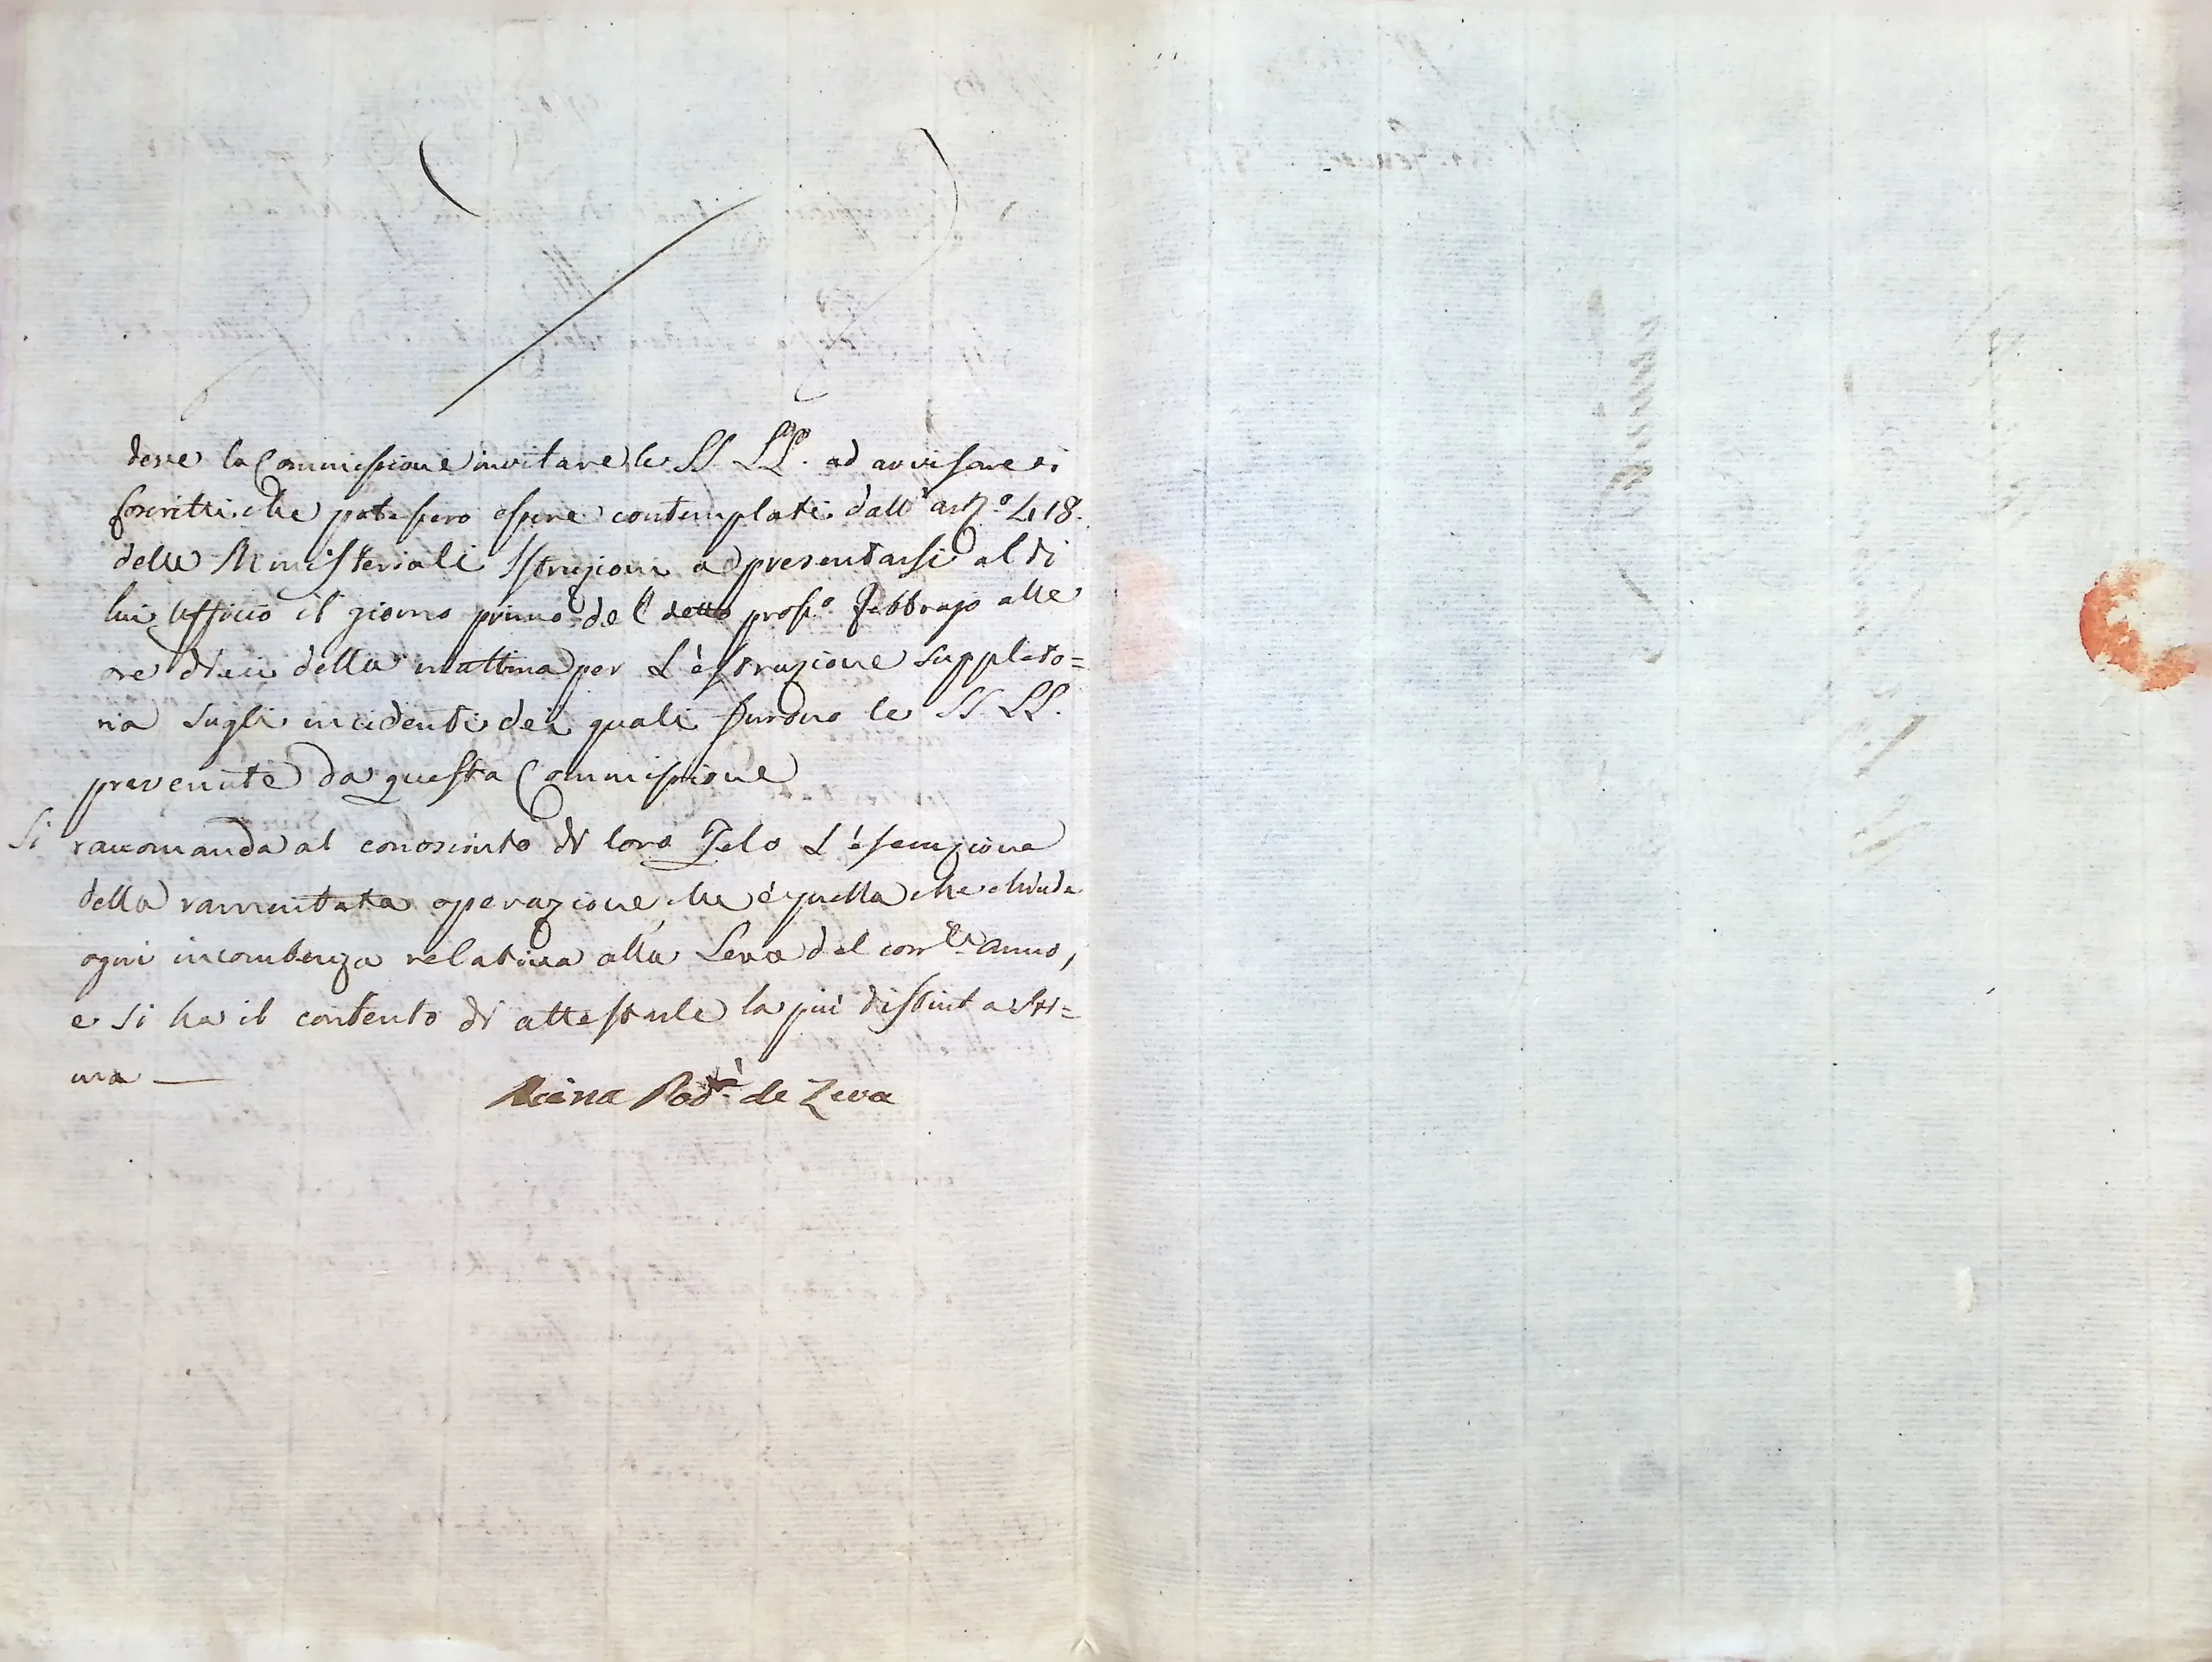 deve la Commissione invitare le SS. LL. ad avvisare i
Coscritti che potessero essere contemplati dall' art.º 418.
delle Ministeriali Istruzioni a presentarsi al di
lui Ufficio il giorno primo del detto pross.º Febbrajo alle
ore dieci della mattina per L'estrazione suppleto=
ria sugli incidenti dei quali furono le SS. LL.
prevenute da questa Commissione
Si raccomanda al conosciuto di loro Zelo L'esecuzione
della ramentata operazione, che è quella che chiude
ogni incombenza relativa alla Leva del corr.te anno,
e si ha il contento di attestarle la più distinta sti=
ma —
Pod.à de Leva